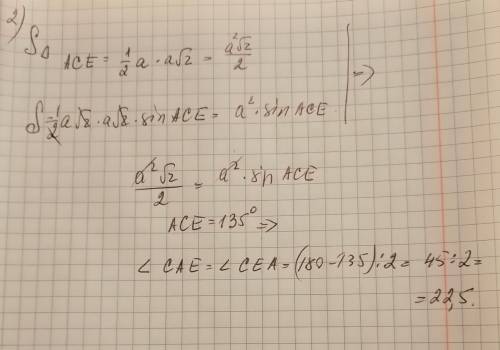 2)
S△ ACE = 1/2 a · a√2 = a²√2/2
S = 1/2 a√2 · a√2 · sin ACE = a² · sin ACE | =>
a²√2/2 = a² · sin ACE
ACE = 135° =>
∠ CAE = ∠ CEA = (180 - 135) : 2 = 45 : 2 =
= 22,5.